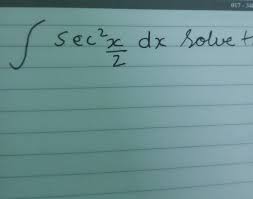 ∫ sec² x/2 dx solve